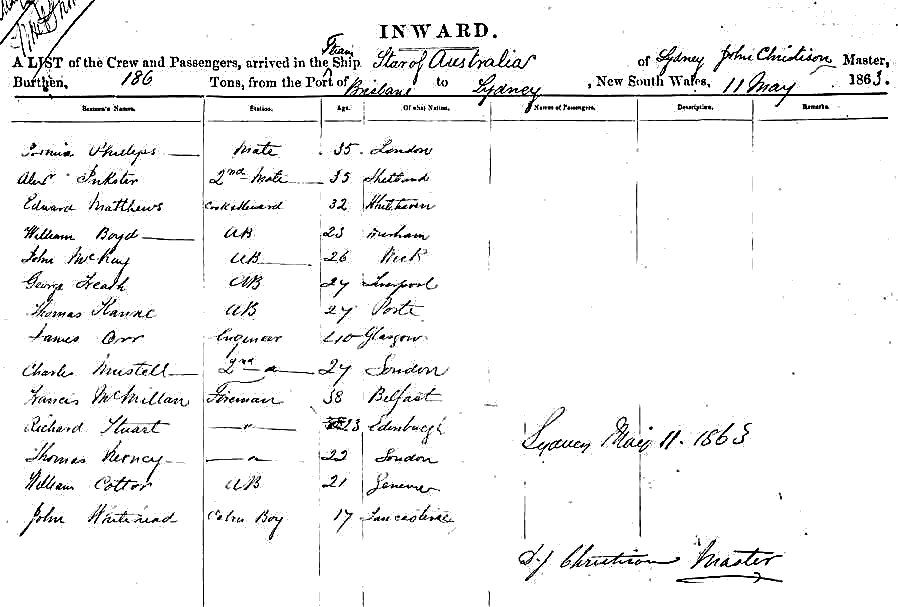 INWARD.
A LIST of the Crew and Passengers, arrived in the Ship Steam Star of Australia of Sydney John Christison Master,
Burthen, 186 Tons, from the Port of Brisbane to Sydney, New South Wales, 11 May 1863.
Seamen's Names. Station. Age. Of what Nation. Names of Passengers. Description. Remarks.
Phillips Mate 35 London
Alexr Inkster 2nd Mate 35 Shetland
Edward Matthews Cook & Steward 32 Whithaven
William Boyd AB 23 Durham
John McKay AB 26 Wick
George AB 27 Liverpool
Thomas AB 27
James Orr Engineer 40 Glasgow
Charles 2nd " 27 London
Francis McMillan Fireman 38 Belfast
Richard Stuart " 23 Edenburgh
Thomas " 22 London
William Cottor AB 21
John Whitehead Cabin Boy 17 Lancashire
Sydney May 11. 1863
Christison Master